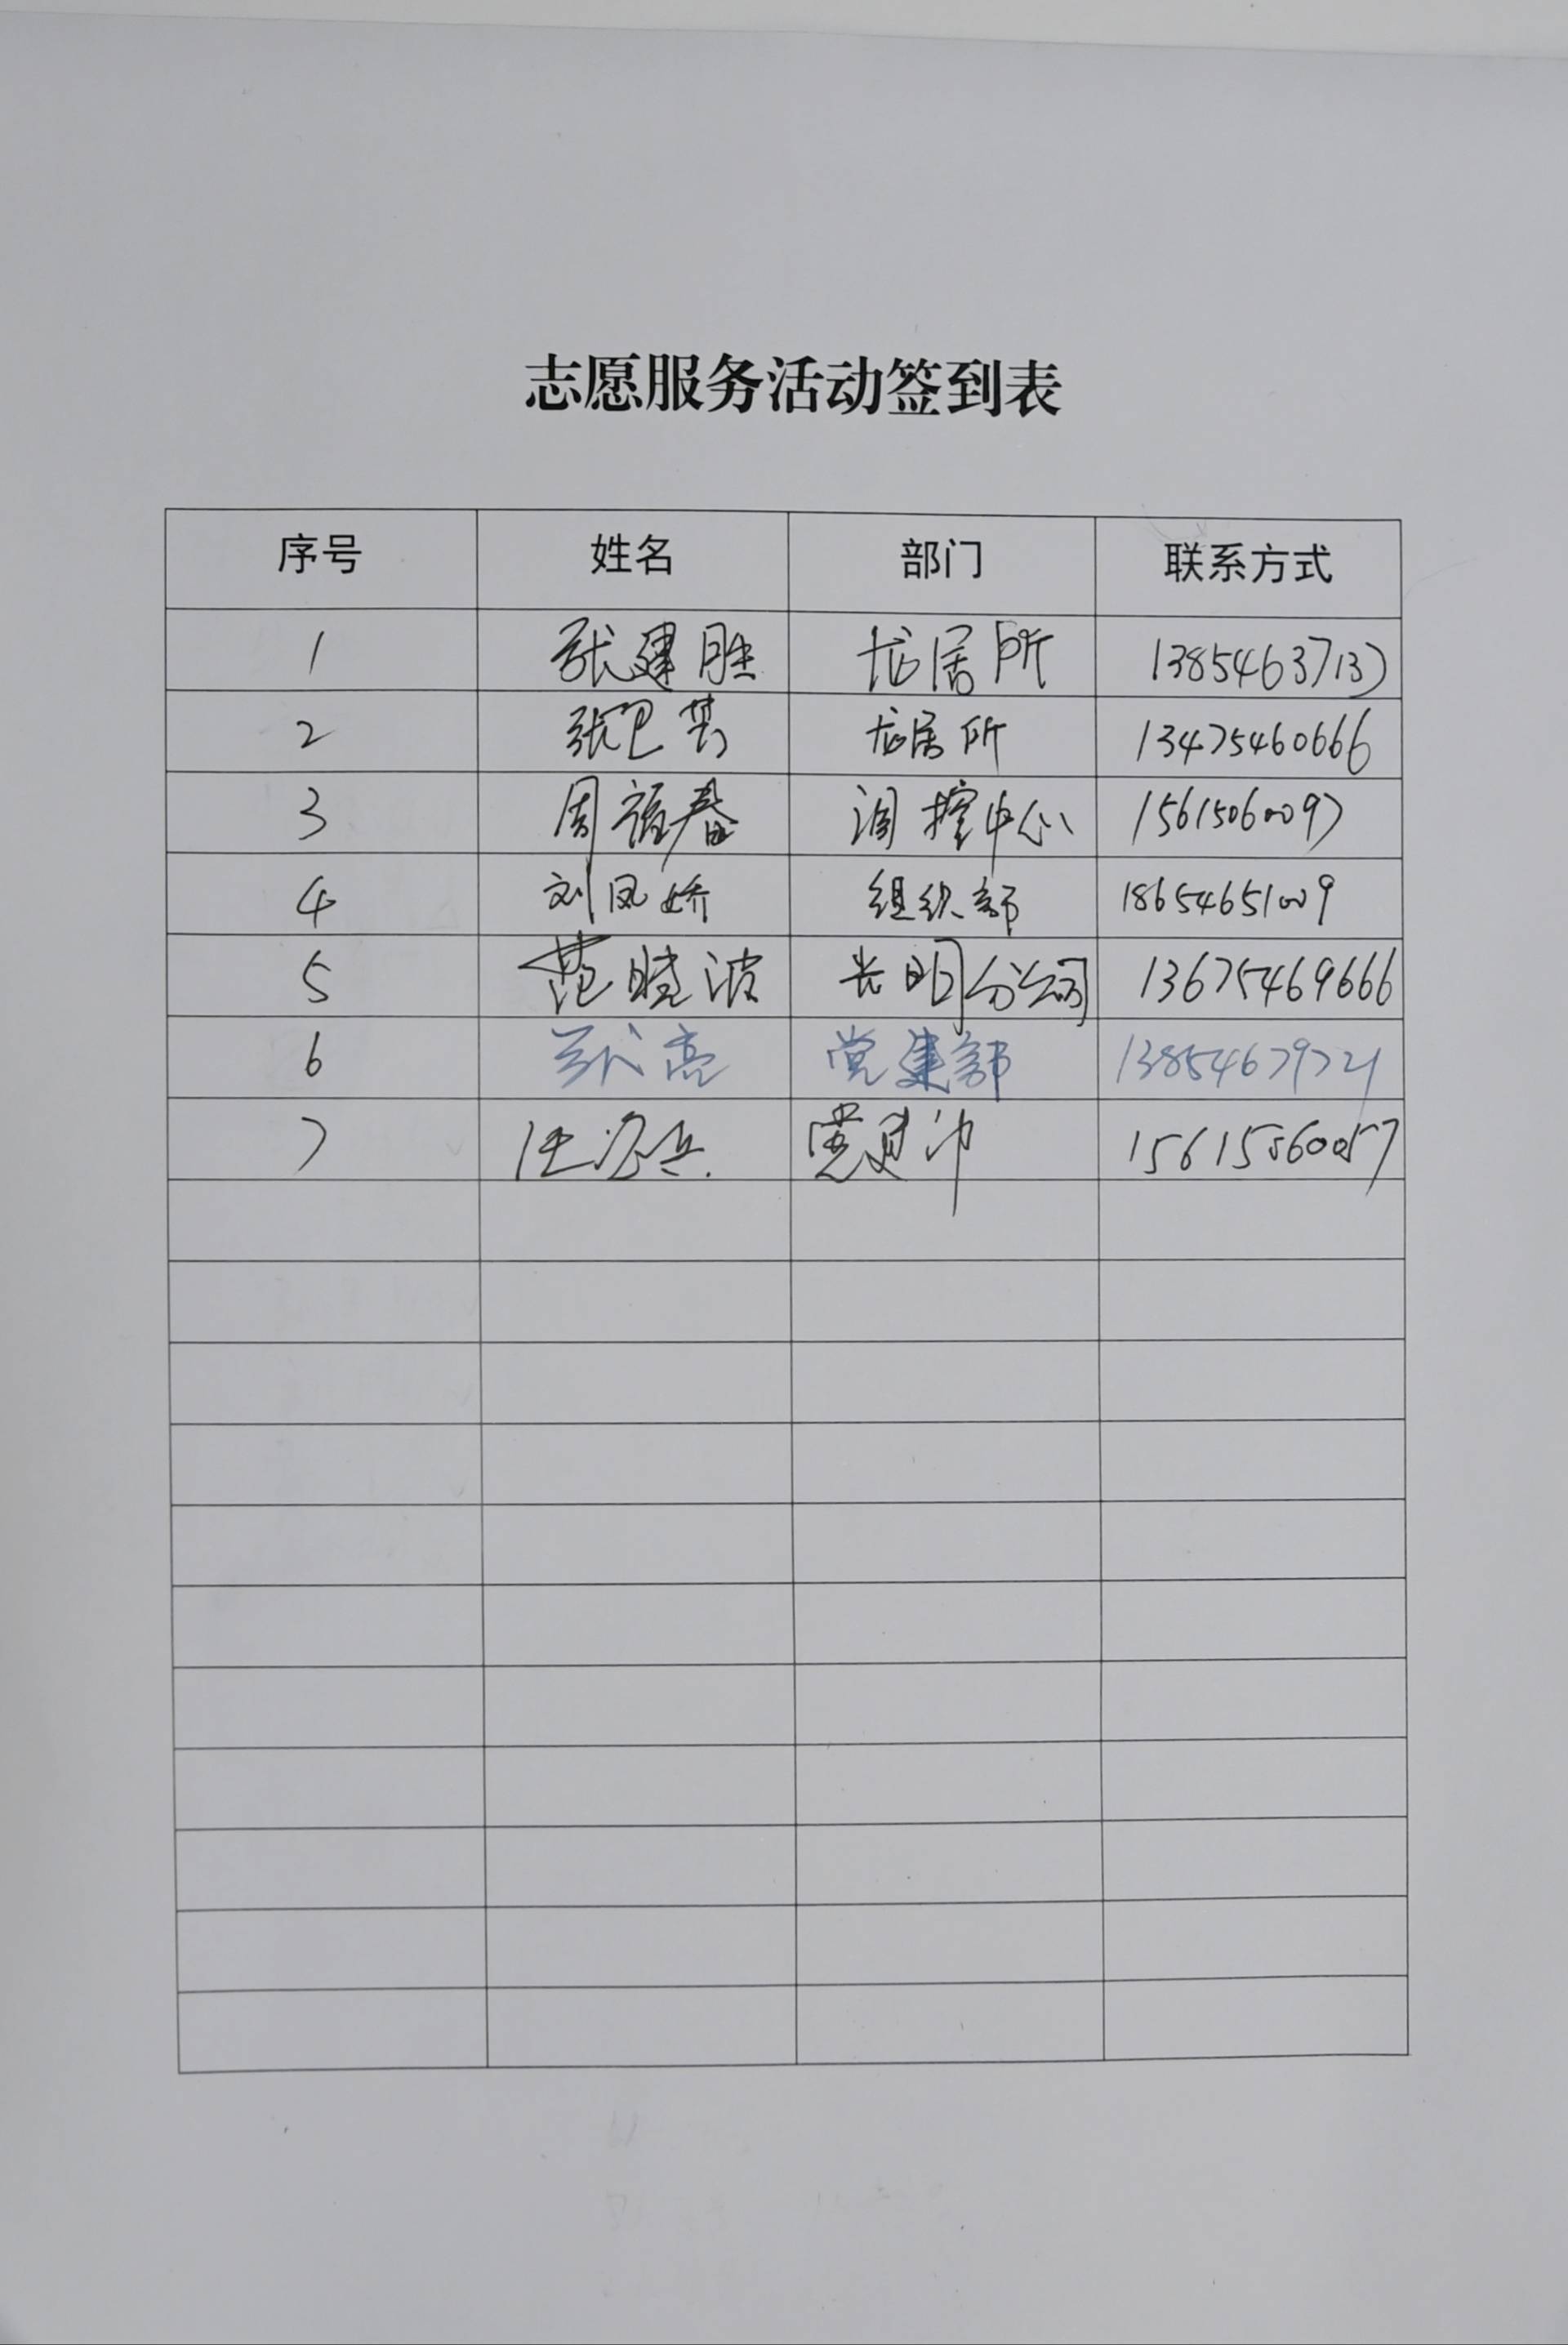 志愿服务活动签到表
序号 姓名 部门 联系方式
1 张建胜 龙居所 13854637137
2 张卫 龙居所 13475460666
3 周福春 调控中心 15615060097
4 刘凤娇 组织部 18654651009
5 范晓波 光明分公司 13675469666
6 张亮 党建部 13854679721
7 党建部 15615560057